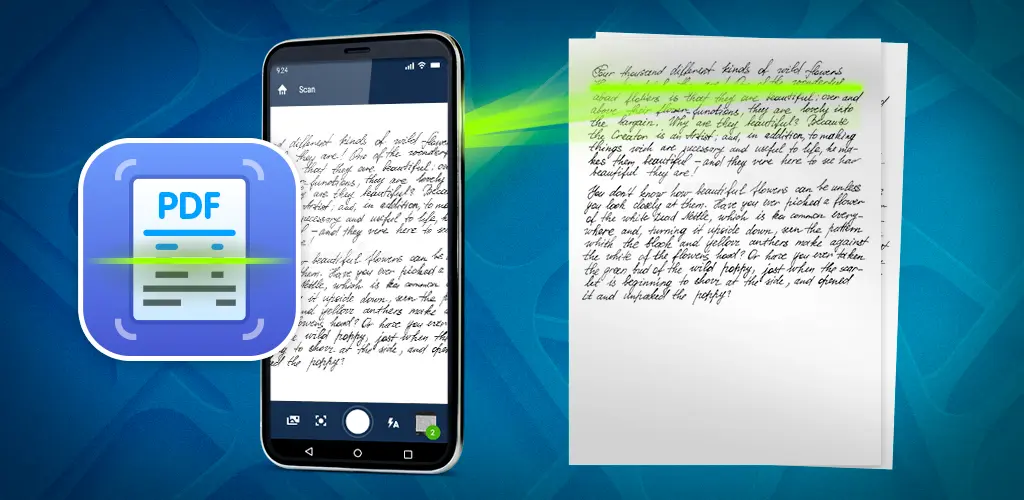 9:24
Scan
PDF
different kinds of wild-flowe
they are! One of the wonder
that they are beautiful; ov
functions, they are lovely
are they beautiful? Becau
Artist; and, in addition, to ma
necessary and useful to life, h
- and they vere here to se
beautiful flowers can be
hem. Have you ever picked a
Nettle, which is common e
it upside down, seen the p
d yellow anthers make a
flowers head? Or have you ever
wild poppy, just when th
ng to shovr at the side, and open
ed the poppy?
2
Four thousand different kinds of wild-flowers
about flowers is that they are beautiful; over and
above their flower-functions, they are lovely into
the bargain. Why are they beautiful? Because
the Creator is an Artist; and, in addition, to making
things wich are necessary and useful to life, he ma-
kes them beautiful - and they vere here to see hovr
beautiful they are!
You don't know how beautiful flowers can be unless
you look closely at them. Have you ever picked a flower
of the white Dead Nettle, which is common every-
where and, turning it upside down, seen the pattern
which the black and yellow anthers make against
the white of the flowers head? Or have you ever taken
the green bud of the wild poppy, just when the scar-
let is beginning to shovr at the side, and opened
it and unpacked the poppy?